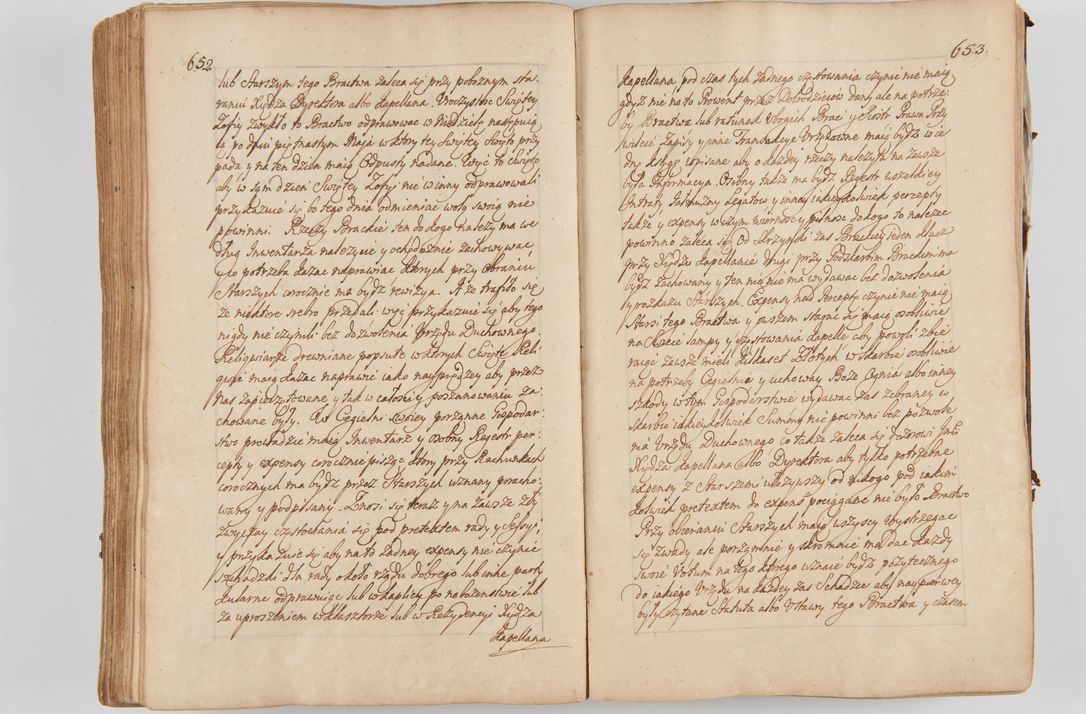 652
lub Starszym tego Bractwa zaleca się przy pobożnym sta-
raniu Xiędza Dyrektora albo Kapellana. Uroczystość Swiętey
Zofiy zwykło to Bractwo odprawować w Niedzielę następuią
cą po dniu piętnastym Maja w ktory tey Swiętey Swięto przy
pada y na ten dzień maią Odpusty nadane. Więc to Swięto
aby w sam dzień Swiętey Zofiy nie w inny odprawowali
przykazuie się bo tego dnia odmieniać wolą swoią nie
powinni. Rzeczy Brackie ten do kogo należy ma we
dług Inwentarza należycie y ochędożnie zachowywać
y co potrzeba kazać naprawiać ktorych przy obraniu
Starszych corocznie ma bydz rewizya. A że trafiło się
że niektore srebro przedali więc przykazuie się aby tego
nigdy nie czynili bez dozwolenia Urzędu Duchownego.
Reliquiarze drewniane popsute w ktorych Swięte Reli
quie maią kazać naprawić iako nayprędzey aby przez
Nas zapieczętowane y tak w całości y poszanowaniu za-
chowane były. W Cegielni swoiey porządne Gospodar-
stwo prowadzic maią Inwentarz y osobny Regestr per-
cepty y expensy corocznie pisząc ktory przy Rachunkach
corocznych ma bydz przez Starszych uznany poracho-
wany y podpisany. Znosi się teraz y na zawsze zły
zwyczay częstowania się pod pretextem rady y sessyi,
y przykazuie się aby na to żadney expensy nie czynić
schadzki dla rady około rządu dobrego lub inne party
kularne odprawuiąc lub w kaplicy po nabożenstwie lub
za uproszeniem w klasztorze lub w Rezydencyi Xiędza
Kapellana
653.
Kapellana pod czas tych żadnego częstowania czynić nie maią
gdyż nie na to Prowent przez Dobrodzieiow dany ale na potrze-
by Bractwa lub ratunek Ubogich Braci y Siostr Prawa Przy
wileie Zapisy y inne Tranzakcye Urzędowne maią bydz w ie
dnę księgę wpisane aby o każdey rzeczy należyta na zawsze
była Informacya. Osobny także ma bydz Regestr wszelkiey
Intraty Jałmużny Legatow y inney iakieykolwiek percepty
także y expensy w czym wiernosć y pilność do kogo to należeć
powinno zaleca się. Od skrzynki zas Brackiey ieden klucz
przy Xiędzu Kapellanie drugi przy Podskarbim Brackim ma
bydz zachowany y ten nic nie ma wydawać bez dozwolenia
y rozkazu Starszych. Expensy nad Perceptę czynić nie maią
Starsi tego Bractwa y owszem starać się maią osobliwie
na swiece lampy y częstowania kapelle aby powoli zbie
raiąc zawsze mieli kilkaset Złotych w skarbie osobliwie
na potrzeby Cegielnie y uchoway Boże Ognia albo inney
szkody w tym Gospoderstwie wydawać zas zebraney w
skarbie iakieykolwiek Summy nie powinni bez pozwole
nia Urzędu Duchownego co także zaleca się dozorowi Jmć
Xiędza Kapellana albo Dyrektora aby tylko potrzebne
expensy z Starszemi ułożywszy od nikogo pod iakim
kolwiek pretextem do expens pociągane nie było Bractwo
Przy obieraniu Starszych maią wszyscy wystrzegac
się zwady ale porządnie y skromnie ma dać każdy
swoie Votum na tego ktorego uznaie bydz pożytecznego
do iakiego Urzędu na każdey zas Schadzce aby naypierwey
były czytane Statuta albo Ustawy tego Bractwa y czasem